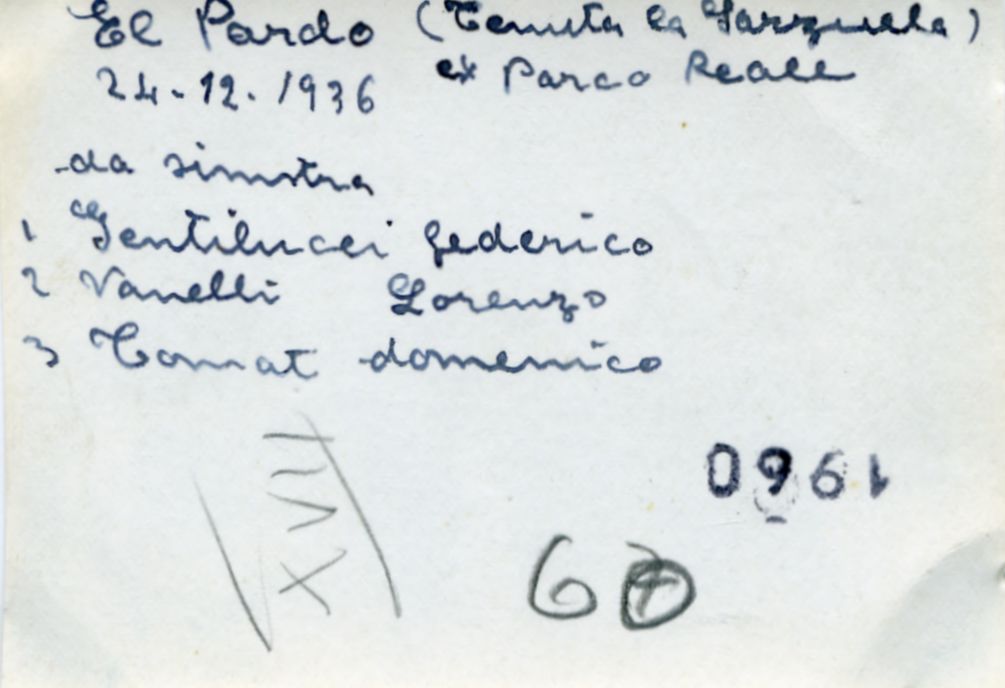 El Pardo (Tenuta la Sarzuela)
24-12.1936 ex Parco Reale
da sinistra
1 Gentilucci Federico
2 Vanelli Lorenzo
3 Tomat domenico
XVII
0961
6